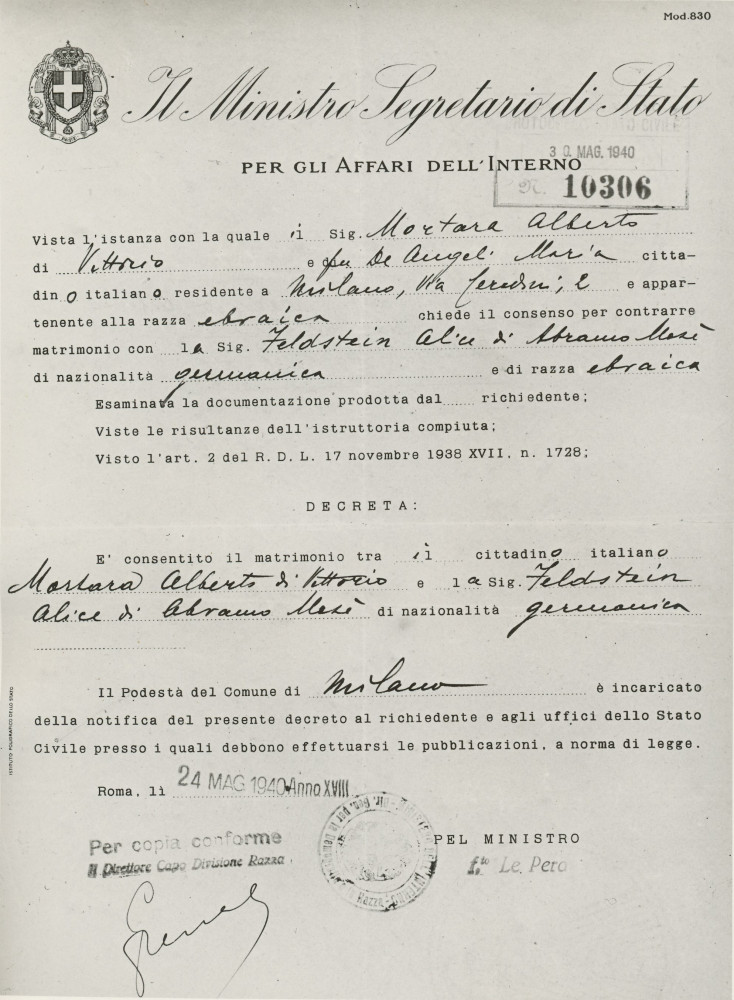 Mod.830
Il Ministro Segretario di Stato
PER GLI AFFARI DELL'INTERNO
30 MAG. 1940
N. 10306
Vista l'istanza con la quale il Sig. Mortara Alberto
di Vittorio e fu De Angeli Maria citta-
dino italiano residente a Milano, Via 2 e appar-
tenente alla razza ebraica chiede il consenso per contrarre
matrimonio con la Sig. Feldstein Alice di Abramo Mosè
di nazionalità germanica e di razza ebraica
Esaminata la documentazione prodotta dal richiedente;
Viste le risultanze dell'istruttoria compiuta;
Visto l'art. 2 del R. D. L. 17 novembre 1938 XVII. n. 1728;
DECRETA:
E' consentito il matrimonio tra il cittadino italiano
Mortara Alberto di Vittorio e la Sig. Feldstein
Alice di Abramo Mosè di nazionalità germanica
Il Podestà del Comune di Milano è incaricato
della notifica del presente decreto al richiedente e agli uffici dello Stato
Civile presso i quali debbono effettuarsi le pubblicazioni, a norma di legge.
ISTITUTO POLIGRAFICO DELLO STATO
Roma, lì 24 MAG 1940 Anno XVIII
Per copia conforme
Il Direttore Capo Divisione Razza
PEL MINISTRO
f.to Le Pera